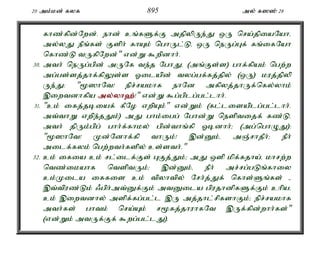 20 அம்மன் கலக 895 அல் கஸஸ் 28
காண்கின்றேன். நான் உங்களுக்கு அதிலிருந்து ஒரு செய்தியையோ,
அல்லது நீங்கள் குளிர் காயும் பொருட்டு, ஒரு நெருப்புக் கங்கையோ
கொண்டு வருகிறேன்" என்று கூறினார்.
30. அவர் நெருப்பின் அருகே வந்த போது, (அங்குள்ள) பாக்கியம் பெற்ற
அப்பள்ளத்தாக்கிலுள்ள ஓடையின் வலப்பக்கத்தில் (ஒரு) மரத்திலி
ருந்து: "மூஸாவே! நிச்சயமாக நானே அகிலத்தாருக்கெல்லாம்
இறைவனாகிய அல்லாஹ்" என்று கூப்பிடப்பட்டார்.
31. "உம் கைத்தடியைக் கீழே எறியும்" என்றும் (கட்டளையிடப்பட்டார்.
அவ்வாறு எறிந்ததும்) அது பாம்பைப் போன்று நெளிவதைக் கண்டு,
அவர் திரும்பிப் பார்க்காமல் பின்வாங்கி ஓடினார்; (அப்பொழுது):
"மூஸாவே! முன்னோக்கி வாரும்! இன்னும், அஞ்சாதீர்; நீர்
அடைக்கலம் பெற்றவர்களில் உள்ளவர்."
32. உம் கையை உம் சட்டைக்குள் புகுத்தும்; அது ஒளி மிக்கதாய், மாசற்ற
வெண்மையாக வெளிவரும்; இன்னும், நீர் அச்சப்படுங்காலை
உம்முடைய கைகளை உம் விலாவில் சேர்த்துக் கொள்ளுங்கள் -
இவ்விரண்டும் ஃபிர்அவ்னுக்கும் அவனுடைய பிரதானிகளுக்கும் உரிய,
உம் இறைவனால் அளிக்கப்பட்ட இரு அத்தாட்சிகளாகும்; நிச்சயமாக
அவர்கள் பாவம் செய்யும் சமூகத்தாராகவே இருக்கின்றார்கள்"
(என்றும் அவருக்குக் கூறப்பட்டது)